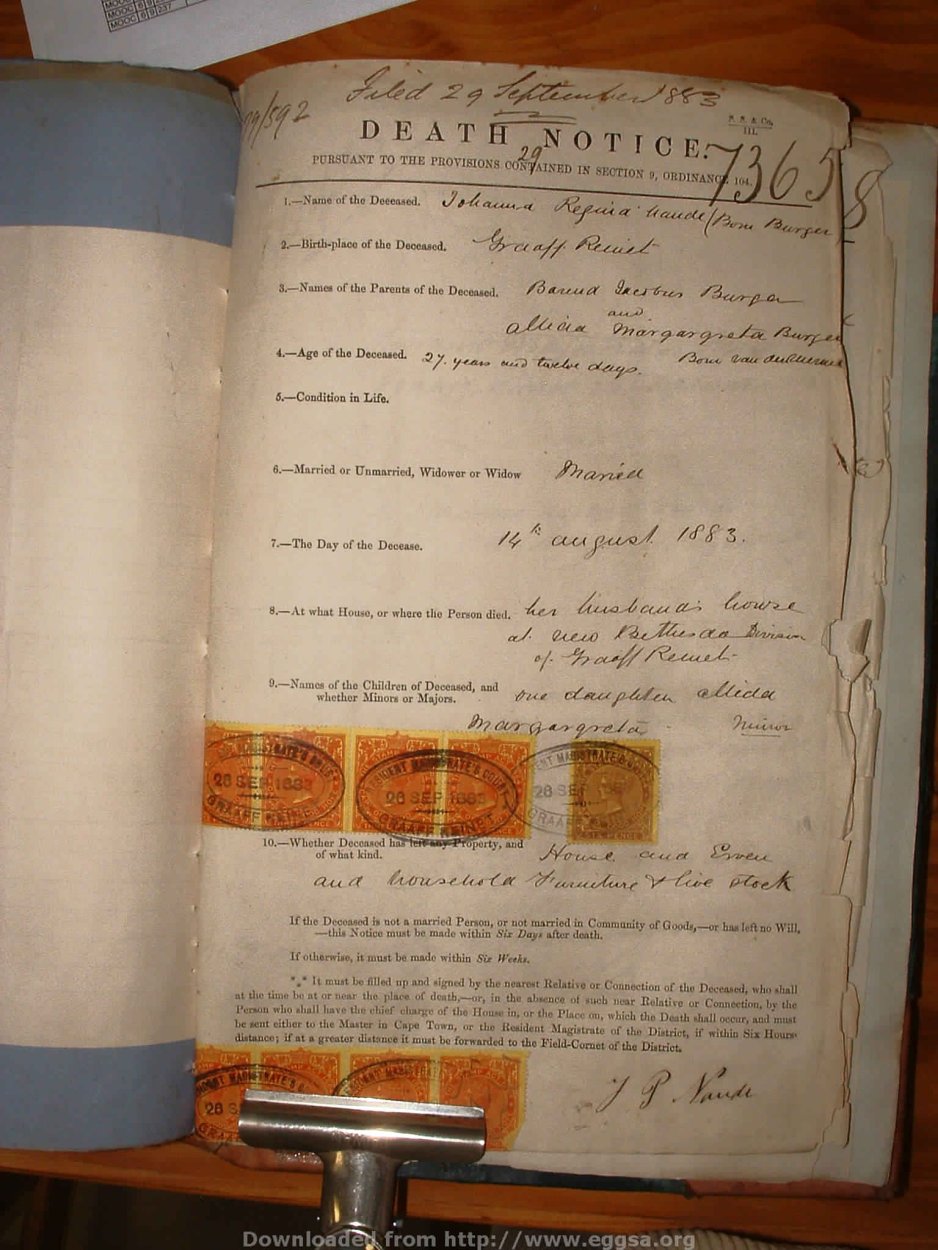 MOOC
MOOC 6 9 237
Filed 29 September 1883
29/592
S. S. & Co.
III.
DEATH NOTICE.
29
7365
8
PURSUANT TO THE PROVISIONS CONTAINED IN SECTION 9, ORDINANCE 104.
1.—Name of the Deceased. Johanna Regina Naude (Born Burger
2.—Birth-place of the Deceased. Graaff Reinet
3.—Names of the Parents of the Deceased. Barend Jacobus Burger
and
Allida Margargreta Burger
4.—Age of the Deceased. 27. years and twelve days. Born van der Merwe
5.—Condition in Life.
6.—Married or Unmarried, Widower or Widow Maried
7.—The Day of the Decease. 14th august 1883.
8.—At what House, or where the Person died. her husband's howse
at new Bethesda Division
of Graaff Reinet
9.—Names of the Children of Deceased, and
whether Minors or Majors. one daughter Allida
Margargreta Minor
RESIDENT MAGISTRATE'S COURT
26 SEP 1883
GRAAFF REINET
RESIDENT MAGISTRATE'S COURT
26 SEP 1883
GRAAFF REINET
RESIDENT MAGISTRATE'S COURT
26 SEP
SIX PENCE
10.—Whether Deceased has left any Property, and
of what kind. House and Erven
and household Furniture & live stock
If the Deceased is not a married Person, or not married in Community of Goods,—or has left no Will,
—this Notice must be made within Six Days after death.
If otherwise, it must be made within Six Weeks.
*** It must be filled up and signed by the nearest Relative or Connection of the Deceased, who shall
at the time be at or near the place of death,—or, in the absence of such near Relative or Connection, by the
Person who shall have the chief charge of the House in, or the Place on, which the Death shall occur, and must
be sent either to the Master in Cape Town, or the Resident Magistrate of the District, if within Six Hours
distance; if at a greater distance it must be forwarded to the Field-Cornet of the District.
J P Naude
26 S
Downloaded from http://www.eggsa.org